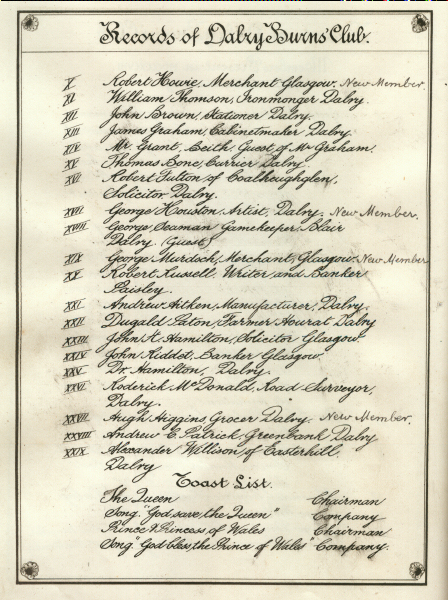 Records of Dalry Burns' Club.
X Robert Howie, Merchant Glasgow. New Member.
XI William Thomson, Ironmonger Dalry.
XII John Brown, Stationer Dalry.
XIII James Graham, Cabinetmaker Dalry.
XIV Mr. Grant, Beith. Guest of Mr Graham.
XV Thomas Bone, Currier Dalry.
XVI Robert Fulton of Coalheughglen,
Solicitor Dalry.
XVII George Houston, Artist, Dalry. New Member.
XVIII George Seaman Gamekeeper, Blair
Dalry. (Guest)
XIX George Murdoch, Merchant, Glasgow. New Member
XX Robert Russell. Writer and Banker
Paisley.
XXI Andrew Aitken, Manufacturer, Dalry.
XXII Dugald Paton, Farmer Hourat Dalry
XXIII John R. Hamilton, Solicitor Glasgow.
XXIV John Riddet, Banker Glasgow.
XXV Dr. Hamilton, Dalry.
XXVI Roderick McDonald, Road Surveyor,
Dalry.
XXVII Hugh Higgins, Grocer Dalry. New Member.
XXVIII Andrew C. Patrick, Greenbank Dalry
XXIX Alexander Willison of Easterhill,
Dalry
Toast List.
The Queen Chairman
Song. "God save, the Queen" Company
Prince & Princess, of Wales Chairman
Song "God bless, the Prince of Wales" Company.